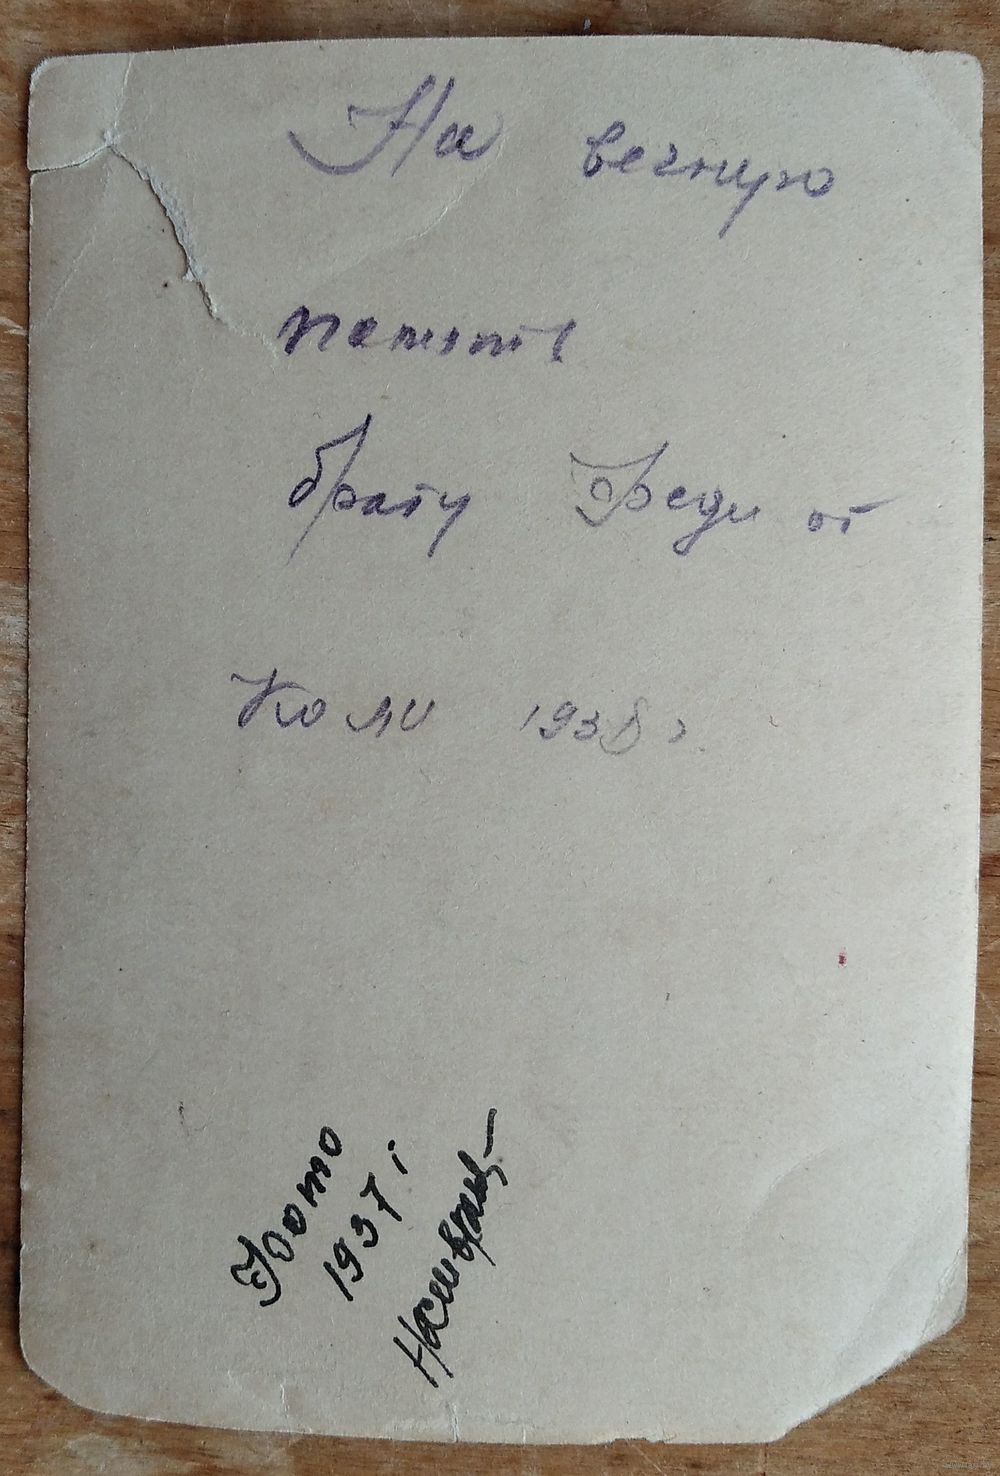 На вечную
память
брату Феди от
Коли 1938 г
Фото
1937 г